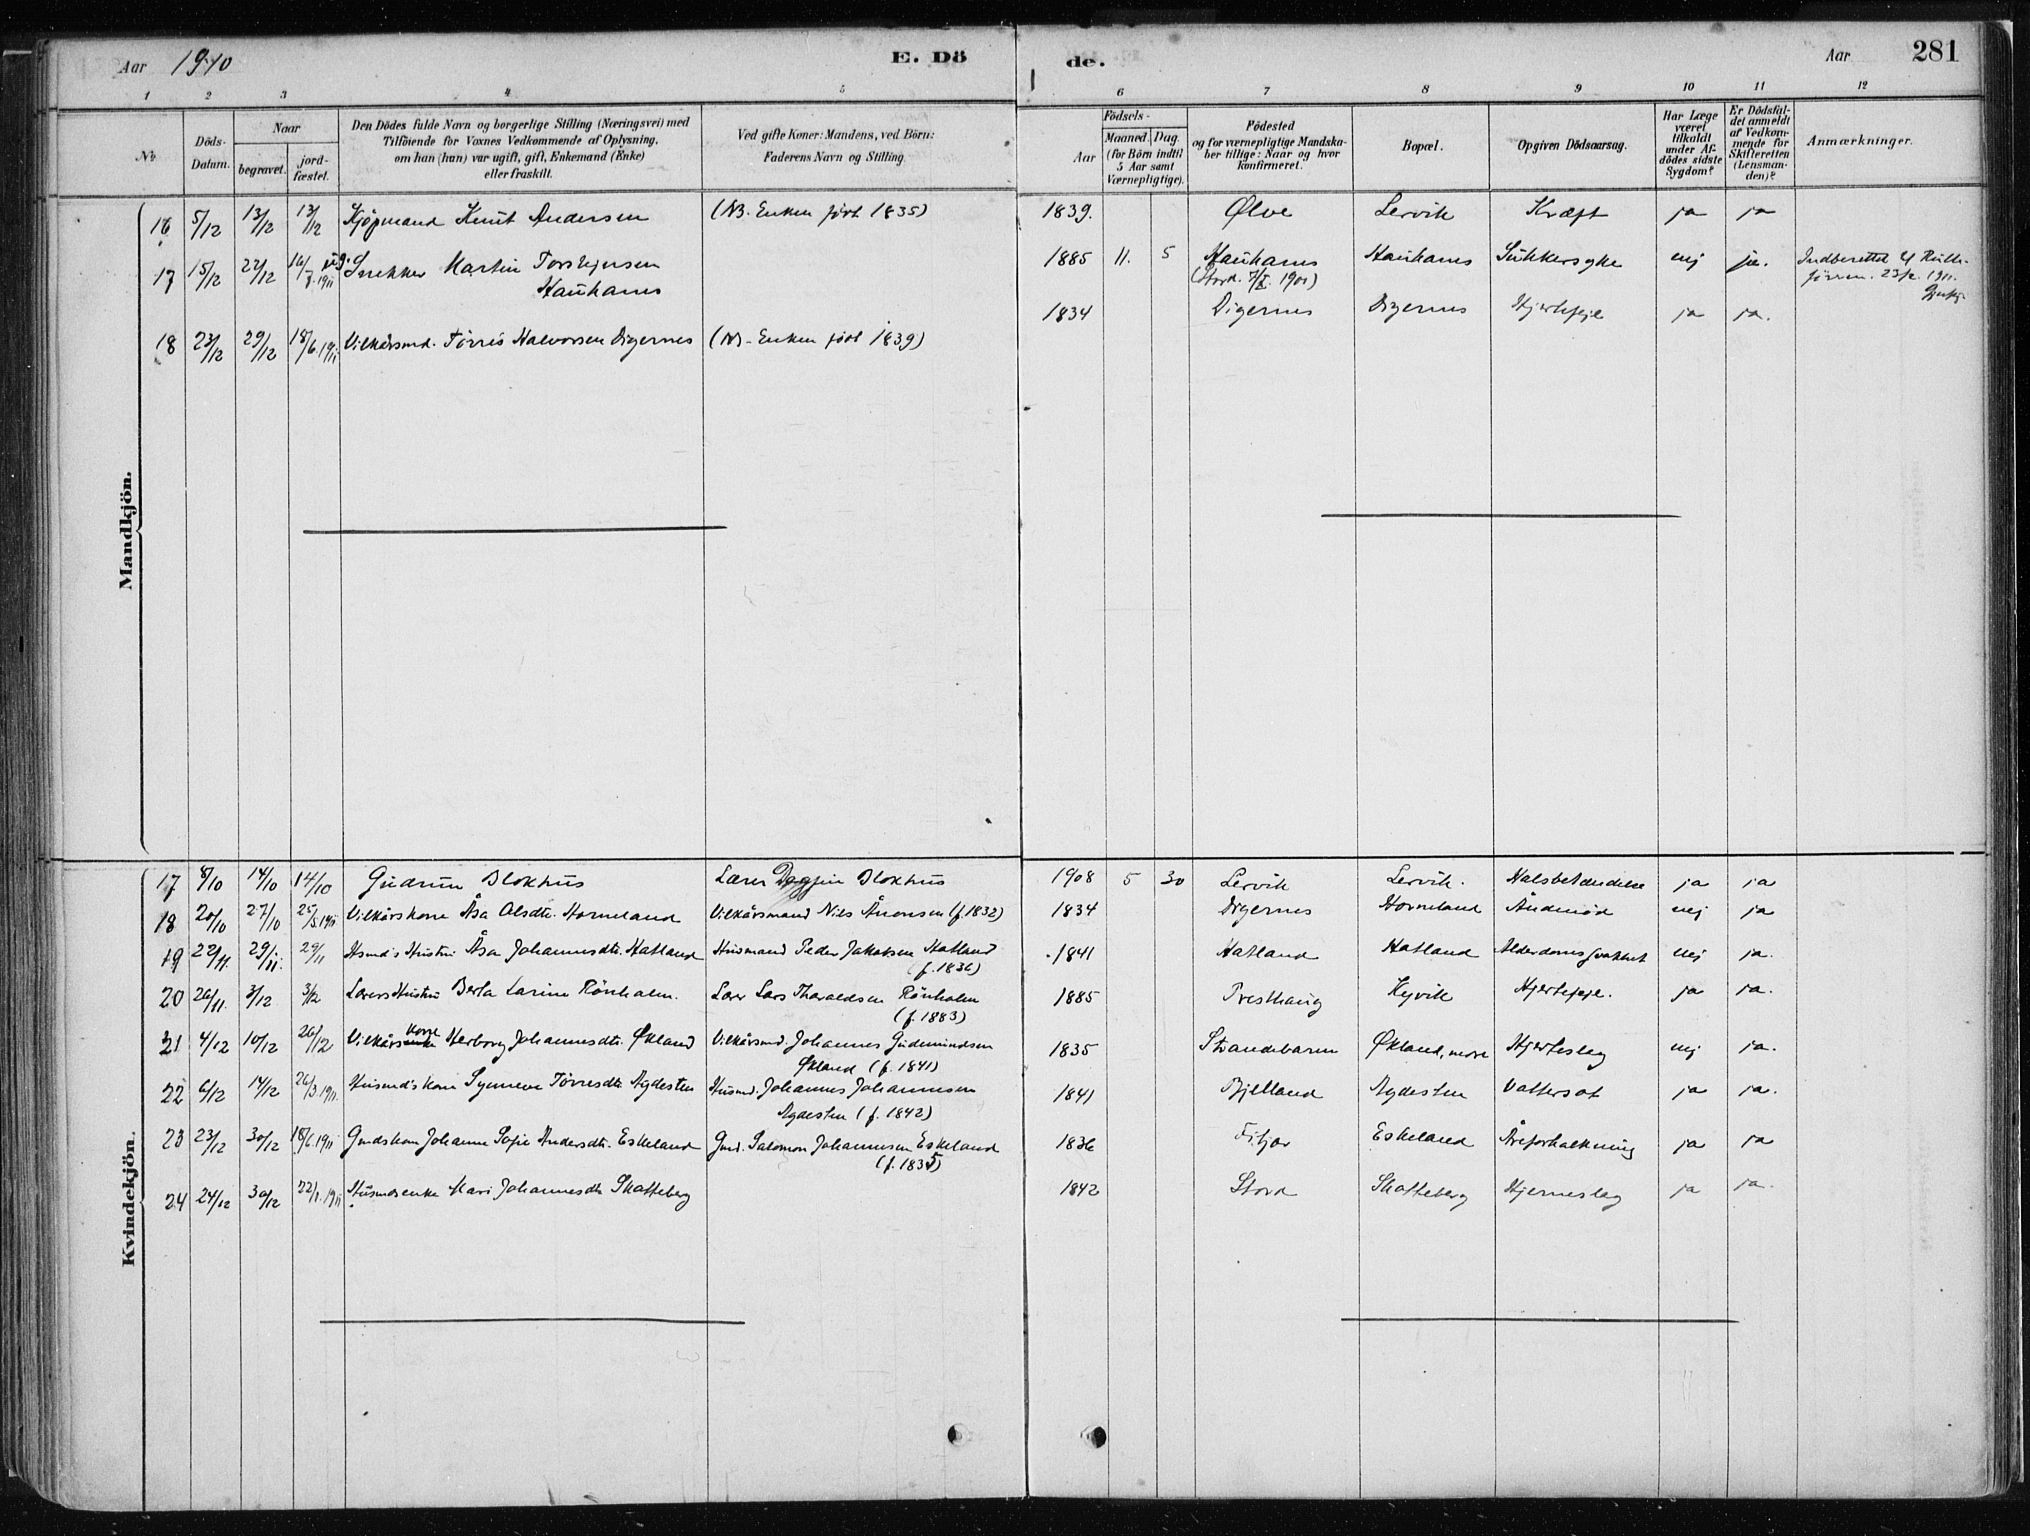 Aar 1910
E. Dö
de.
Aar
281
1 2 3 4 5 6 7 8 9 10 11 12
No
Döds-
Datum.
Naar
begravet.
jord-
fæstet.
Den Dödes fulde Navn og borgerlige Stilling (Næringsvei) med
Tilföiende for Voxnes Vedkommende af Oplysning,
om han (hun) var ugift, gift, Enkemand (Enke)
eller fraskilt.
Ved gifte Koner: Mandens, ved Börn:
Faderens Navn og Stilling.
Födsels-
Aar
Maaned. Dag.
(for Börn indtil
5 Aar samt
Værnepligtige).
Födested
og for værnepligtige Mandska-
ber tillige: Naar og hvor
konfirmeret.
Bopæl.
Opgiven Dödsaarsag.
Har Læge
været
tilkaldt
under Af-
dödes sidste
Sygdom?
Er Dödsfal-
det anmeldt
af Vedkom-
mende for
Skifteretten
(Lensman-
den)?
Anmærkninger.
Mandkjön.
16 5/12 13/12 13/12 Kjöpmand Knut Andersen (NB. Enken født 1835) 1839. Ølve Lervik Kræft ja ja
17 15/12 22/12 ug. Snekker Martin Torstensen 1885 11. 5 Hauhams Hauhams Sukkersyke nej ja. Indberettet
Hauhams (Stord 1900) 23/2. 1911.
18 23/12 29/12 18/6.1911 Vilkårsmd. Tørris Halvorsen Digernes (NB - Enken født 1839) 1834 Digernes Digernes Hjertefeje ja ja.
Kvindekjön.
17 8/10 14/10 14/10 Gudrun Blokhus Lærer Dagfin Blokhus 1908 5 30 Lervik Lervik. Halsbetændelse ja ja
18 20/10 27/10 25/5.1911 Vilkårskone Åsa Olsdtr. Horneland Vilkårsmand Nils Ånonsen (f. 1832) 1834 Digernes Horneland Åndenød nej ja
19 22/11. 29/11. 29/11 Hsmd's Hustru Åsa Johannesdtr. Hatland Husmand Peder Jakobsen Hatland 1841 Hatland Hatland Alderdomssvakhet nej ja.
(f. 1836)
20 26/11. 3/12 3/12 Lærers Hustru Berta Larine Rönholm. Lærer Lars Tharaldsen Rönholm 1885 Presthaug Hejvik Hjertefeje. ja ja.
(f. 1883)
21 4/12 10/12 26/12 Vilkårskone Herborg Johannesdtr. Økland Vilkårsmd. Johannes Gudmundsen 1835 Strandebarm Økland, nere Hjerteslag nej ja.
Økland (f. 1841)
22 6/12 14/12 26/3.1911. Husmd's kone Synneve Tørresdtr Agdesten Husmd. Johannes Johannesen 1841 Bjelland Agdesten Vattersot ja ja.
Agdesten (f. 1842)
23 23/12 30/12 18/6.1911 Gmdskone Johanne Sofie Andersdtr. Eskeland Gmd. Salomon Johannesen Eskeland 1836 Fitjar Eskeland Åreforkalkning ja ja
(f. 1835)
24 24/12 30/12 22/1.1911 Husmdsenke Mari Johannesdtr Skatteberg 1842 Stord Skatteberg Hjerneslag ja ja.